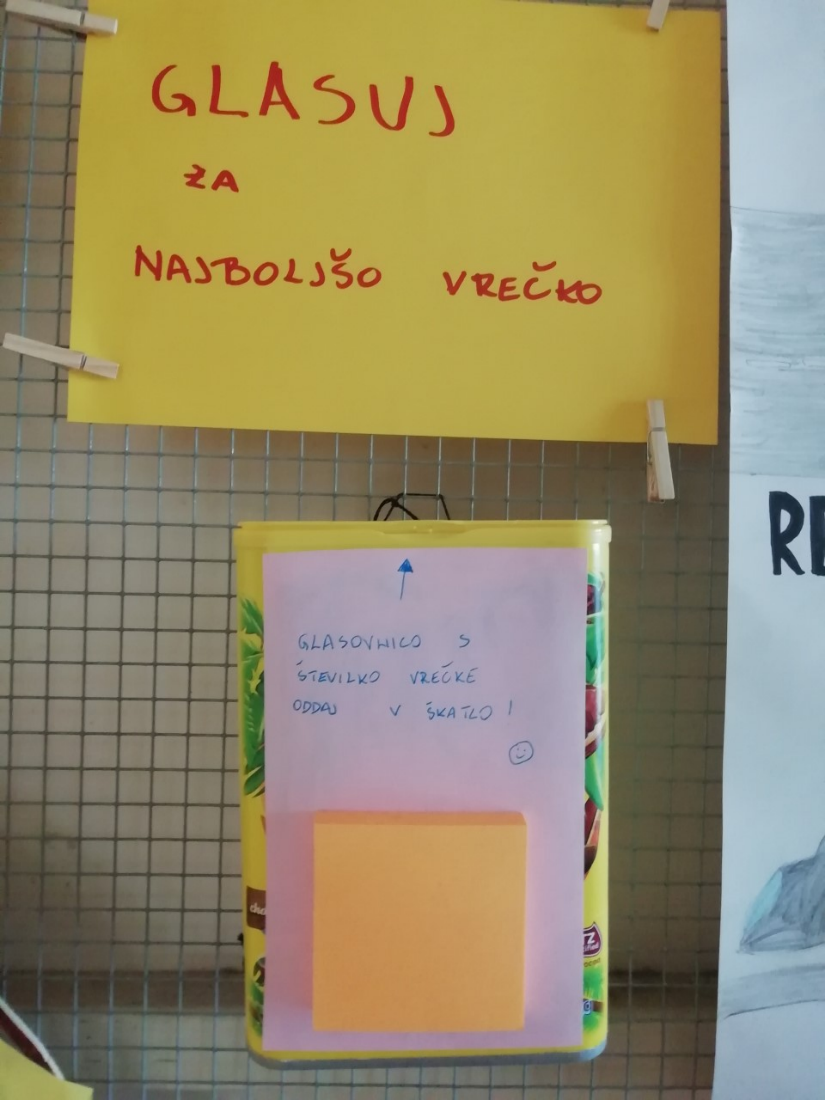 GLASUJ
ZA
NAJBOLJŠO VREČKO
GLASOVNICO S
ŠTEVILKO VREČKE
ODDAJ V ŠKATLO!
RE